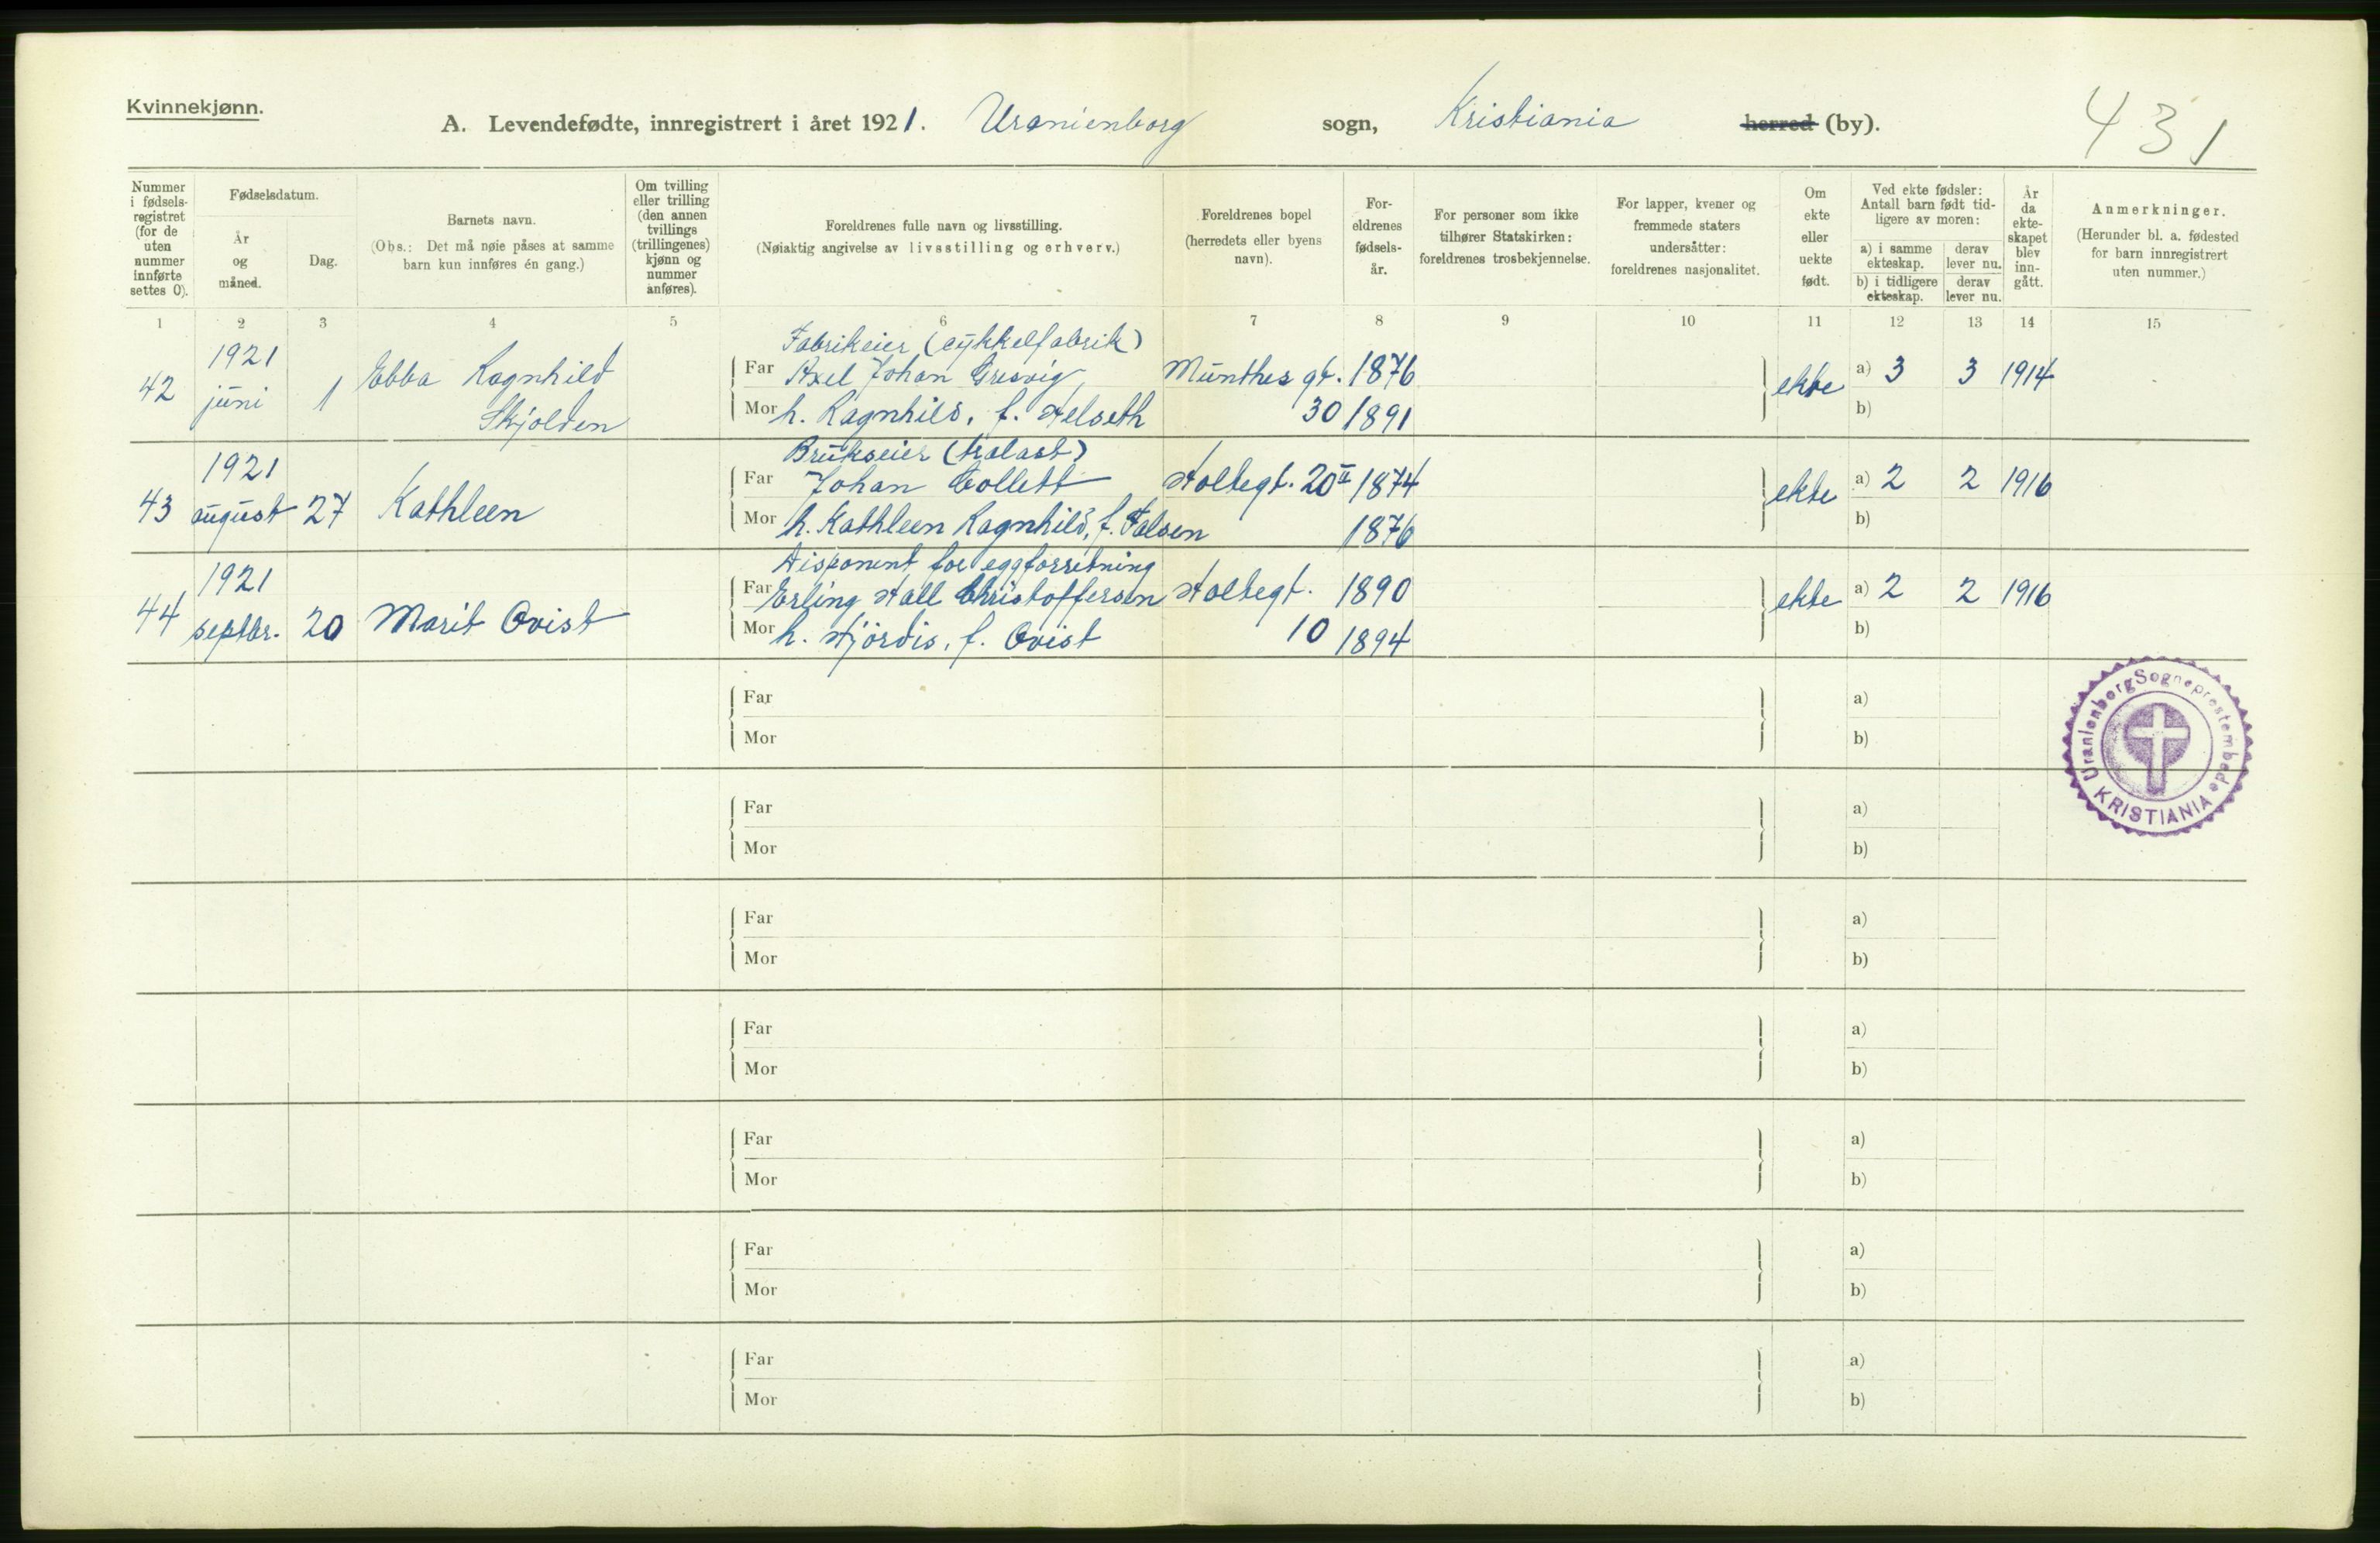 Kvinnekjønn.
A. Levendefødte, innregistrert i året 1921. Uranienborg sogn, Kristiania herred (by).
431
Nummer i fødsels-registret (for de uten nummer innførte settes 0).
Fødselsdatum.
År og måned.
Dag.
Barnets navn.
(Obs.: Det må nøie påses at samme barn kun innføres én gang.)
Om tvilling eller trilling (den annen tvillings (trillingenes) kjønn og nummer anføres).
Foreldrenes fulle navn og livsstilling.
(Nøiaktig angivelse av livsstilling og erhverv.)
Foreldrenes bopel (herredets eller byens navn).
For-eldrenes fødsels-år.
For personer som ikke tilhører Statskirken: foreldrenes trosbekjennelse.
For lapper, kvener og fremmede staters undersåtter: foreldrenes nasjonalitet.
Om ekte eller uekte født.
Ved ekte fødsler: Antall barn født tid-ligere av moren:
a) i samme ekteskap.
derav lever nu.
b) i tidligere ekteskap.
derav lever nu.
År da ekte-skapet blev inn-gått.
Anmerkninger.
(Herunder bl. a. fødested for barn innregistrert uten nummer.)
1 2 3 4 5 6 7 8 9 10 11 12 13 14 15
Fabrikeier (cykkelfabrik)
42 1921 juni 1 Ebba Ragnhild Skjolden
Far Axel Johan Gresvig, Münthes gt. 1876 ekte a) 3 3 1914
Mor h. Ragnhild, f. Helseth 30 1891 b)
Brukseier (trelast)
43 1921 august 27 Kathleen
Far Johan Collett Holtegt. 20 II 1874 ekte a) 2 2 1916
Mor h. Kathleen Ragnhild, f. Falsen 1876 b)
Disponent for eggforretning
44 1921 septbr. 20 Marit Qvist
Far Erling Hall Christoffersen Holtegt. 1890 ekte a) 2 2 1916
Mor h. Hjördis, f. Qvist 10 1894 b)
Uranienborg Sogneprestembede
KRISTIANIA
Far a)
Mor b)
Far a)
Mor b)
Far a)
Mor b)
Far a)
Mor b)
Far a)
Mor b)
Far a)
Mor b)
Far a)
Mor b)